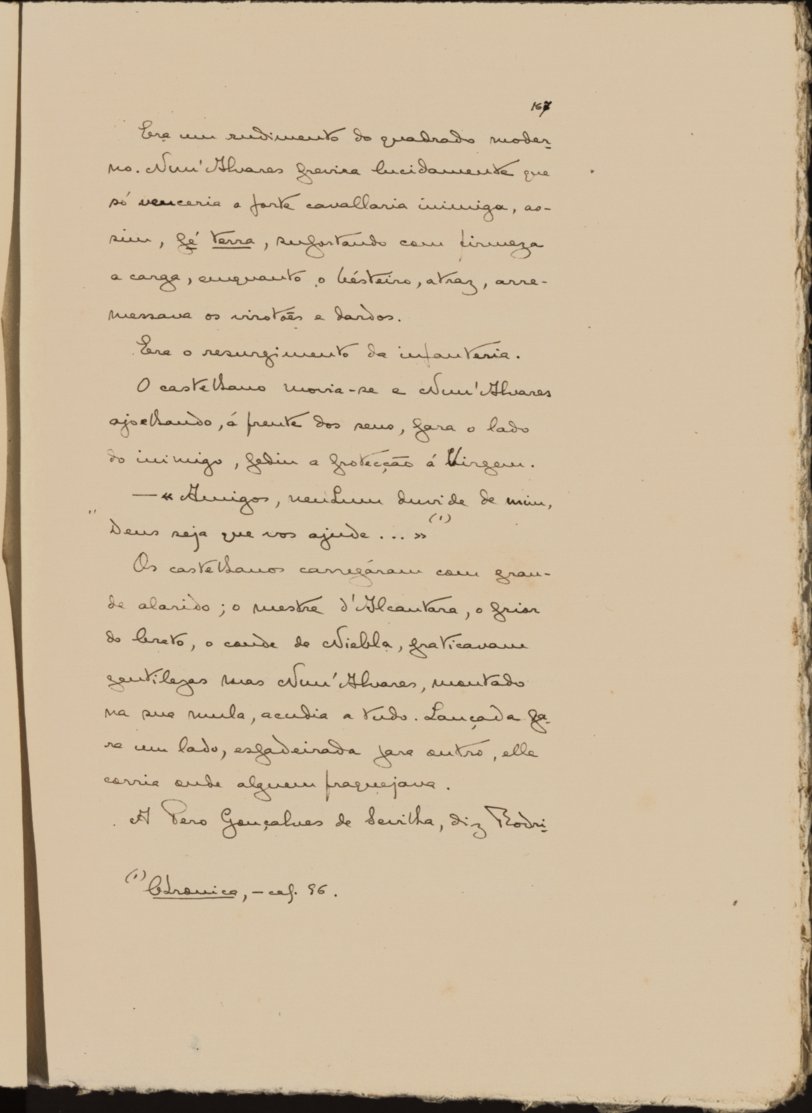 167
Era um rudimento do quadrado moder-
no. Nun'Alvares previra lucidamente que
só venceria a forte cavallaria inimiga, as-
sim, pé terra, suportando com firmeza
a carga, emquanto o bésteiro, atraz, arre-
messava os virotões e dardos.
Era o resurgimento da infanteria.
O castelhano movia-se e Nun'Alvares
ajoelhando, á frente dos seus, para o lado
do inimigo, pediu a protecção á Virgem.
— « Amigos, nenhum duvide de mim,
Deus seja que vos ajude... » (1)
Os castelhanos carregáram com gran-
de alarido; o mestre d'Alcantara, o prior
do Crato, o conde de Niebla, praticavam
gentilezas mas Nun'Alvares, montado
na sua mula, acudia a tudo. Lançada pa-
ra um lado, espadeirada para outro, elle
corria onde alguem fraquejava.
A Pero Gonçalves de Sevilha, diz Rodri-
(1) Chronica, — cap. 96.